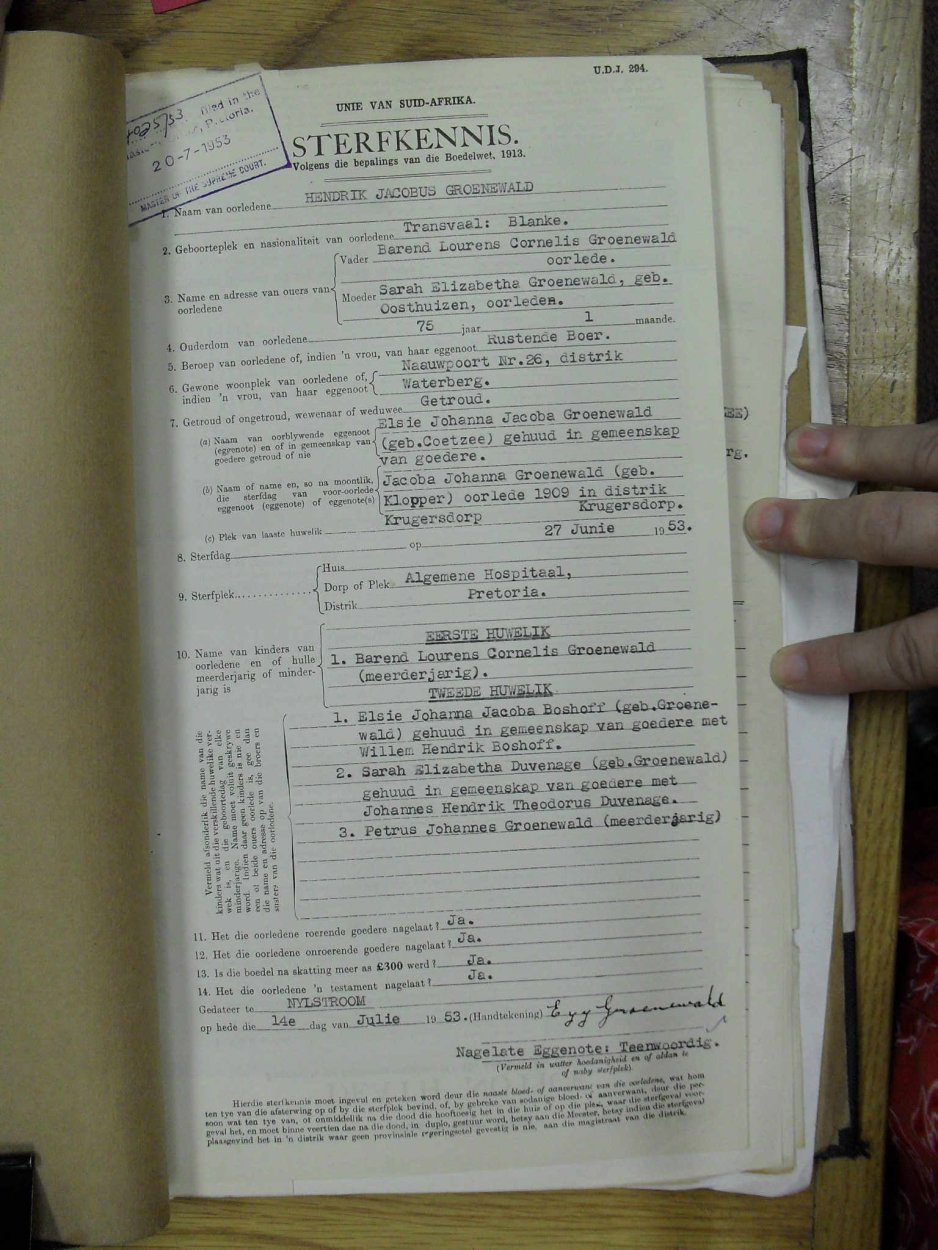 U.D.J. 294.
4025/53 filed in the
Pretoria.
20-7-1953
MASTER OF THE SUPREME COURT.
UNIE VAN SUID-AFRIKA.
STERFKENNIS.
Volgens die bepalings van die Boedelwet, 1913.
1. Naam van oorledene HENDRIK JACOBUS GROENEWALD
2. Geboorteplek en nasionaliteit van oorledene Transvaal: Blanke.
3. Name en adresse van ouers van oorledene
Vader Barend Lourens Cornelis Groenewald
oorlede.
Moeder Sarah Elizabetha Groenewald, geb.
Oosthuizen, oorleden.
4. Ouderdom van oorledene 75 jaar 1 maande.
5. Beroep van oorledene of, indien 'n vrou, van haar eggenoot Rustende Boer.
6. Gewone woonplek van oorledene of, Naauwpoort Nr.26, distrik
indien 'n vrou, van haar eggenoot Waterberg.
7. Getroud of ongetroud, wewenaar of weduwee Getroud.
(a) Naam van oorblywende eggenoot Elsie Johanna Jacoba Groenewald
(eggenote) en of in gemeenskap van (geb.Coetzee) gehuud in gemeenskap
goedere getroud of nie van goedere.
(b) Naam of name en, so na moontlik, Jacoba Johanna Groenewald (geb.
die sterfdag van voor-oorlede Klopper) oorlede 1909 in distrik
eggenoot (eggenote) of eggenote(s) Krugersdorp.
(c) Plek van laaste huwelik Krugersdorp
8. Sterfdag op 27 Junie 1953.
9. Sterfplek
Huis
Dorp of Plek Algemene Hospitaal,
Distrik Pretoria.
10. Name van kinders van
oorledene en of hulle
meerderjarig of minder-
jarig is
EERSTE HUWELIK
1. Barend Lourens Cornelis Groenewald
(meerderjarig).
TWEEDE HUWELIK
1. Elsie Johanna Jacoba Boshoff (geb.Groene-
wald) gehuud in gemeenskap van goedere met
Willem Hendrik Boshoff.
2. Sarah Elizabetha Duvenage (geb.Groenewald)
gehuud in gemeenskap van goedere met
Johannes Hendrik Theodorus Duvenage.
3. Petrus Johannes Groenewald (meerderjarig)
Vermeld afsonderlik die name van die
kinders wat uit die verskillende huwelike ver-
wek is, en die geboortedag van elke
minderjarige. Name moet voluit geskrywe
word. Indien daar geen kinders is nie en
een of beide ouers oorlede is, gee dan
die name en adresse op van die broers en
susters van die oorledene.
11. Het die oorledene roerende goedere nagelaat? Ja.
12. Het die oorledene onroerende goedere nagelaat? Ja.
13. Is die boedel na skatting meer as £300 werd? Ja.
14. Het die oorledene 'n testament nagelaat? Ja.
Gedateer te NYLSTROOM
op hede die 14e dag van Julie 1953. (Handtekening) E y y Groenewald
Nagelate Eggenote: Teenwoordig.
(Vermeld in watter hoedanigheid en of aldan te
of naby sterfplek).
Hierdie sterfkennis moet ingevul en geteken word deur die naaste bloed- of aanverwant van die oorledene, wat hom
ten tye van die afsterwing op of by die sterfplek bevind, of, by gebreke van sodanige bloed- of aanverwant, deur die per-
soon wat ten tye van, of onmiddellik na die dood die hooftoesig het in die huis of op die plek, waar die sterfgeval voor-
geval het, en moet binne veertien dae na die dood, in duplo, gestuur word, hetsy aan die Meester, hetsy indien die sterfgeval
plaasgevind het in 'n distrik waar geen provinsiale regeringsetel gevestig is nie, aan die magistraat van die distrik.
EE)
rg.